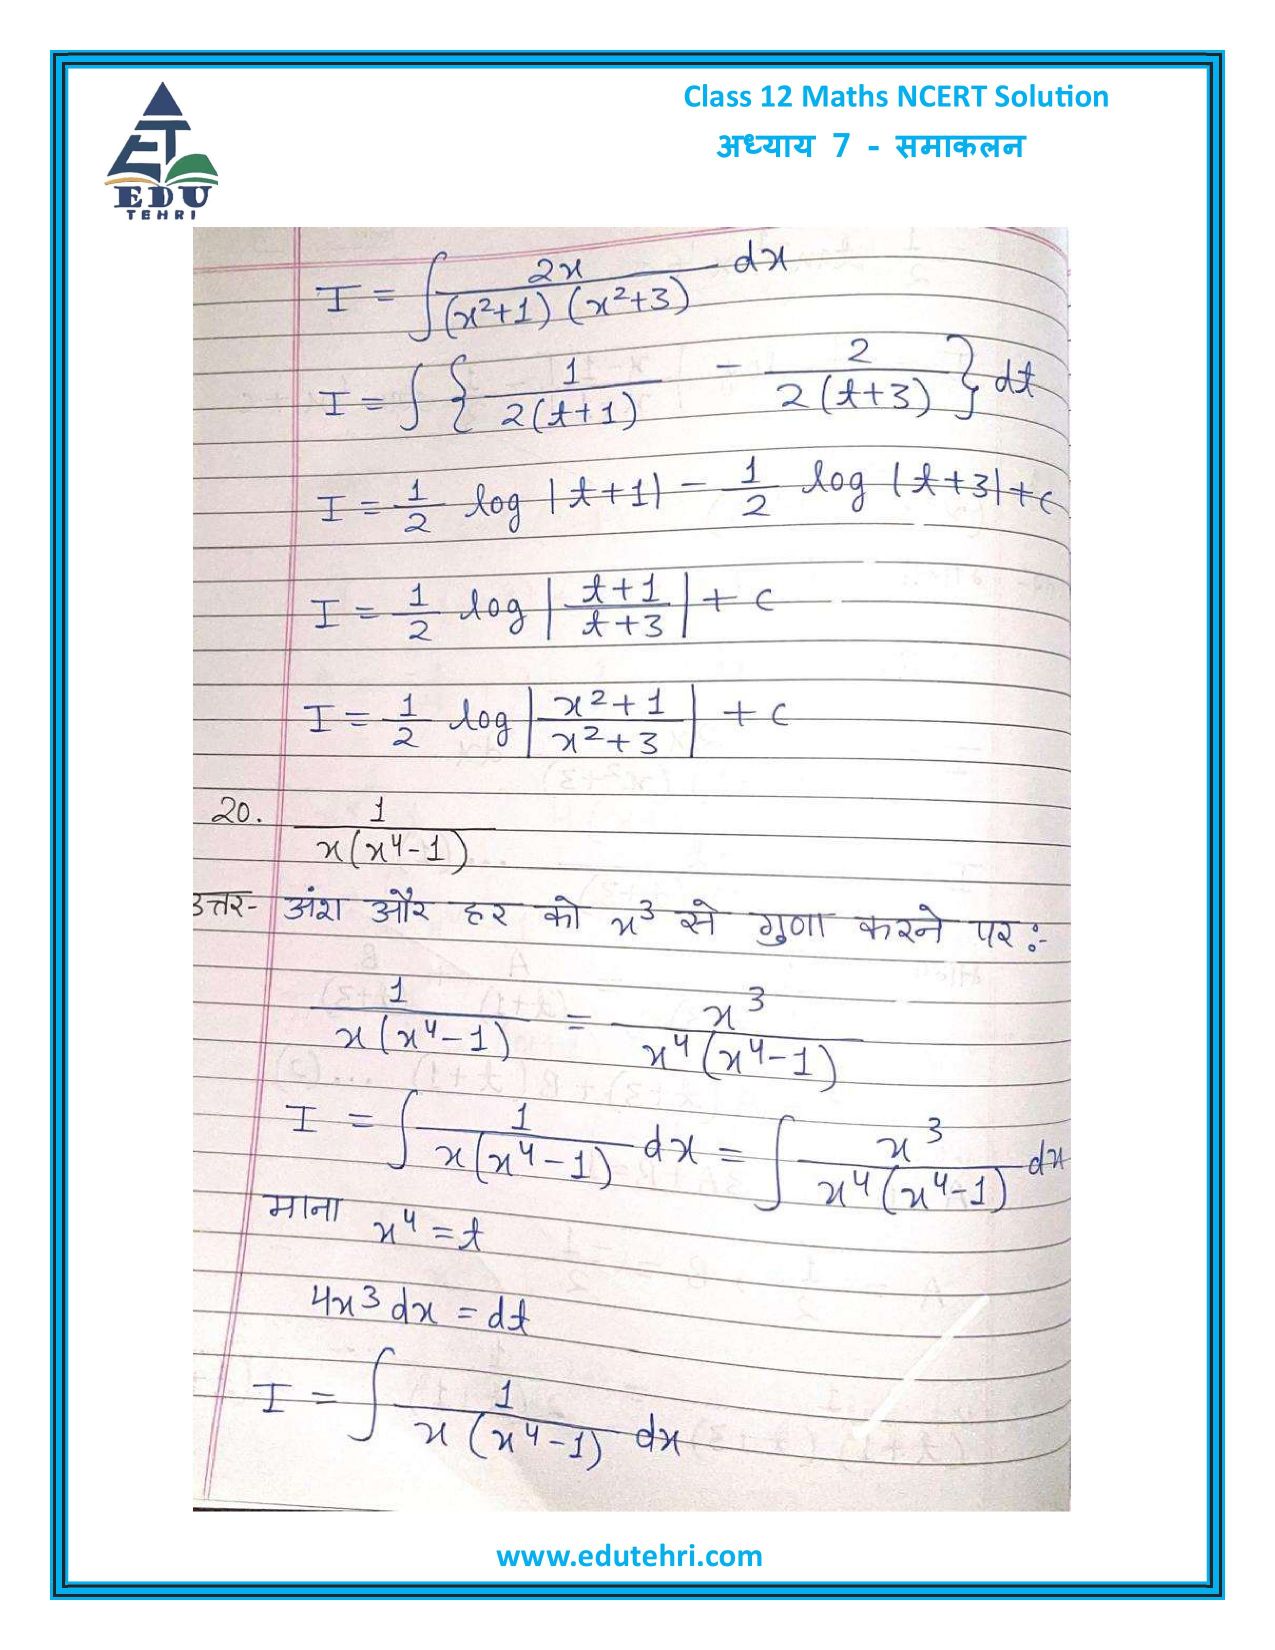 EDU
TEHRI
Class 12 Maths NCERT Solution
अध्याय 7 - समाकलन
I = ∫ 2x / (x²+1) (x²+3) dx
I = ∫ { 1 / 2(t+1) - 2 / 2(t+3) } dt
I = 1/2 log |t+1| - 1/2 log |t+3| + c
I = 1/2 log | t+1 / t+3 | + c
I = 1/2 log | x²+1 / x²+3 | + c
20. 1 / x(x⁴-1)
उत्तर- अंश और हर को x³ से गुणा करने पर :-
1 / x(x⁴-1) = x³ / x⁴(x⁴-1)
I = ∫ 1 / x(x⁴-1) dx = ∫ x³ / x⁴(x⁴-1) dx
माना x⁴ = t
4x³ dx = dt
I = ∫ 1 / x(x⁴-1) dx
www.edutehri.com